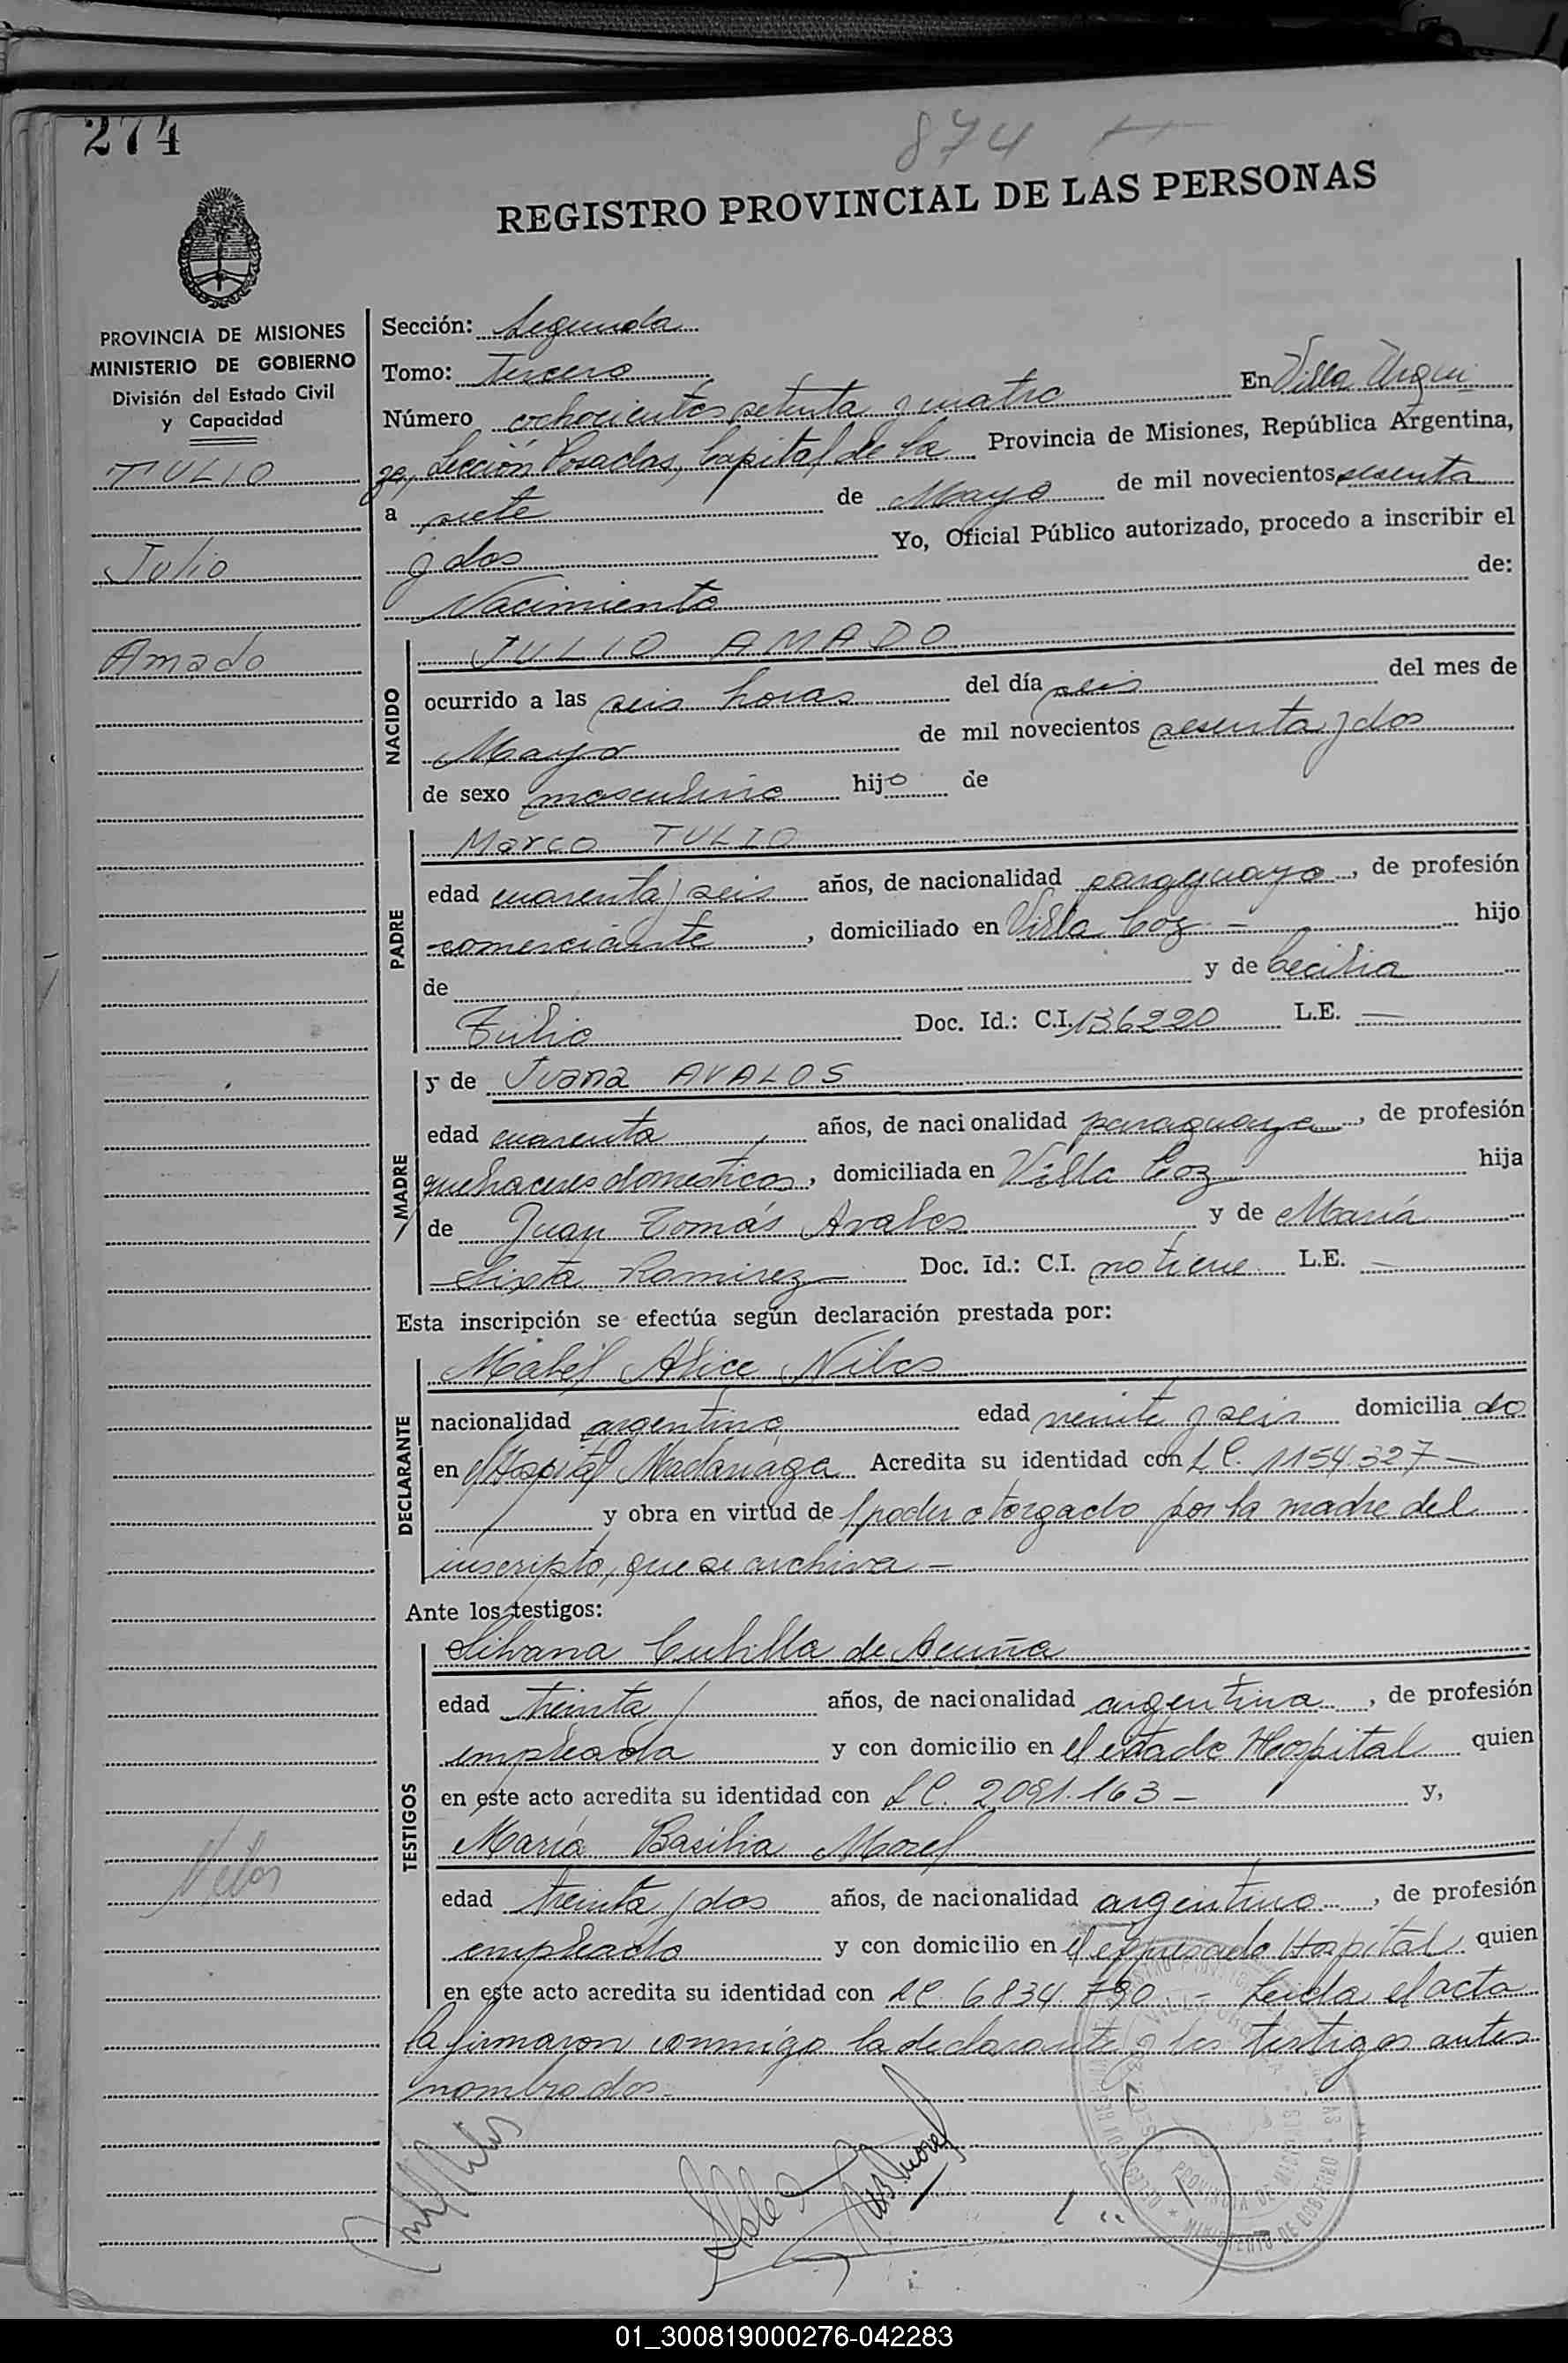 274
874
REGISTRO PROVINCIAL DE LAS PERSONAS
PROVINCIA DE MISIONES
MINISTERIO DE GOBIERNO
División del Estado Civil
y Capacidad
TULIO
Julio
Amado
Nilos
Sección: Segunda
Tomo: Tercero
Número ochocientos setenta y cuatro En Villa Urqui
za, Sección Posadas, Capital de la Provincia de Misiones, República Argentina,
a siete de Mayo de mil novecientos sesenta
y dos Yo, Oficial Público autorizado, procedo a inscribir el
Nacimiento de:
NACIDO
JULIO AMADO
ocurrido a las seis horas del día seis del mes de
Mayo de mil novecientos sesenta y dos
de sexo masculino hijo de
PADRE
Marco TULIO
edad cuarenta y seis años, de nacionalidad paraguayo, de profesión
comerciante, domiciliado en Villa Coz - hijo
de y de Cecilia
Tulio Doc. Id.: C.I. 136220 L.E. —
MADRE
y de Juana AVALOS
edad cuarenta años, de nacionalidad paraguaya, de profesión
quehaceres domesticos, domiciliada en Villa Coz hija
de Juan Tomás Avalos y de María
Sixta Ramirez Doc. Id.: C.I. no tiene L.E. —
Esta inscripción se efectúa según declaración prestada por:
DECLARANTE
Mabel Alice Nilos
nacionalidad argentina edad veinte y seis domicilia do
en el Hospital Madariaga Acredita su identidad con L C. 1154.327 —
y obra en virtud de l poder otorgado por la madre del
inscripto, que se archiva -
Ante los testigos:
TESTIGOS
Silvana Cubilla de Acuña
edad treinta años, de nacionalidad argentina, de profesión
empleada y con domicilio en el citado Hospital quien
en este acto acredita su identidad con L C. 2091.163 - y,
María Basilia Morel
edad treinta y dos años, de nacionalidad argentina, de profesión
empleada y con domicilio en el expresado Hospital quien
en este acto acredita su identidad con L C. 6834.790 - Leida el acta
la firmaron conmigo la declarante y los testigos antes
nombrados -
01_300819000276-042283